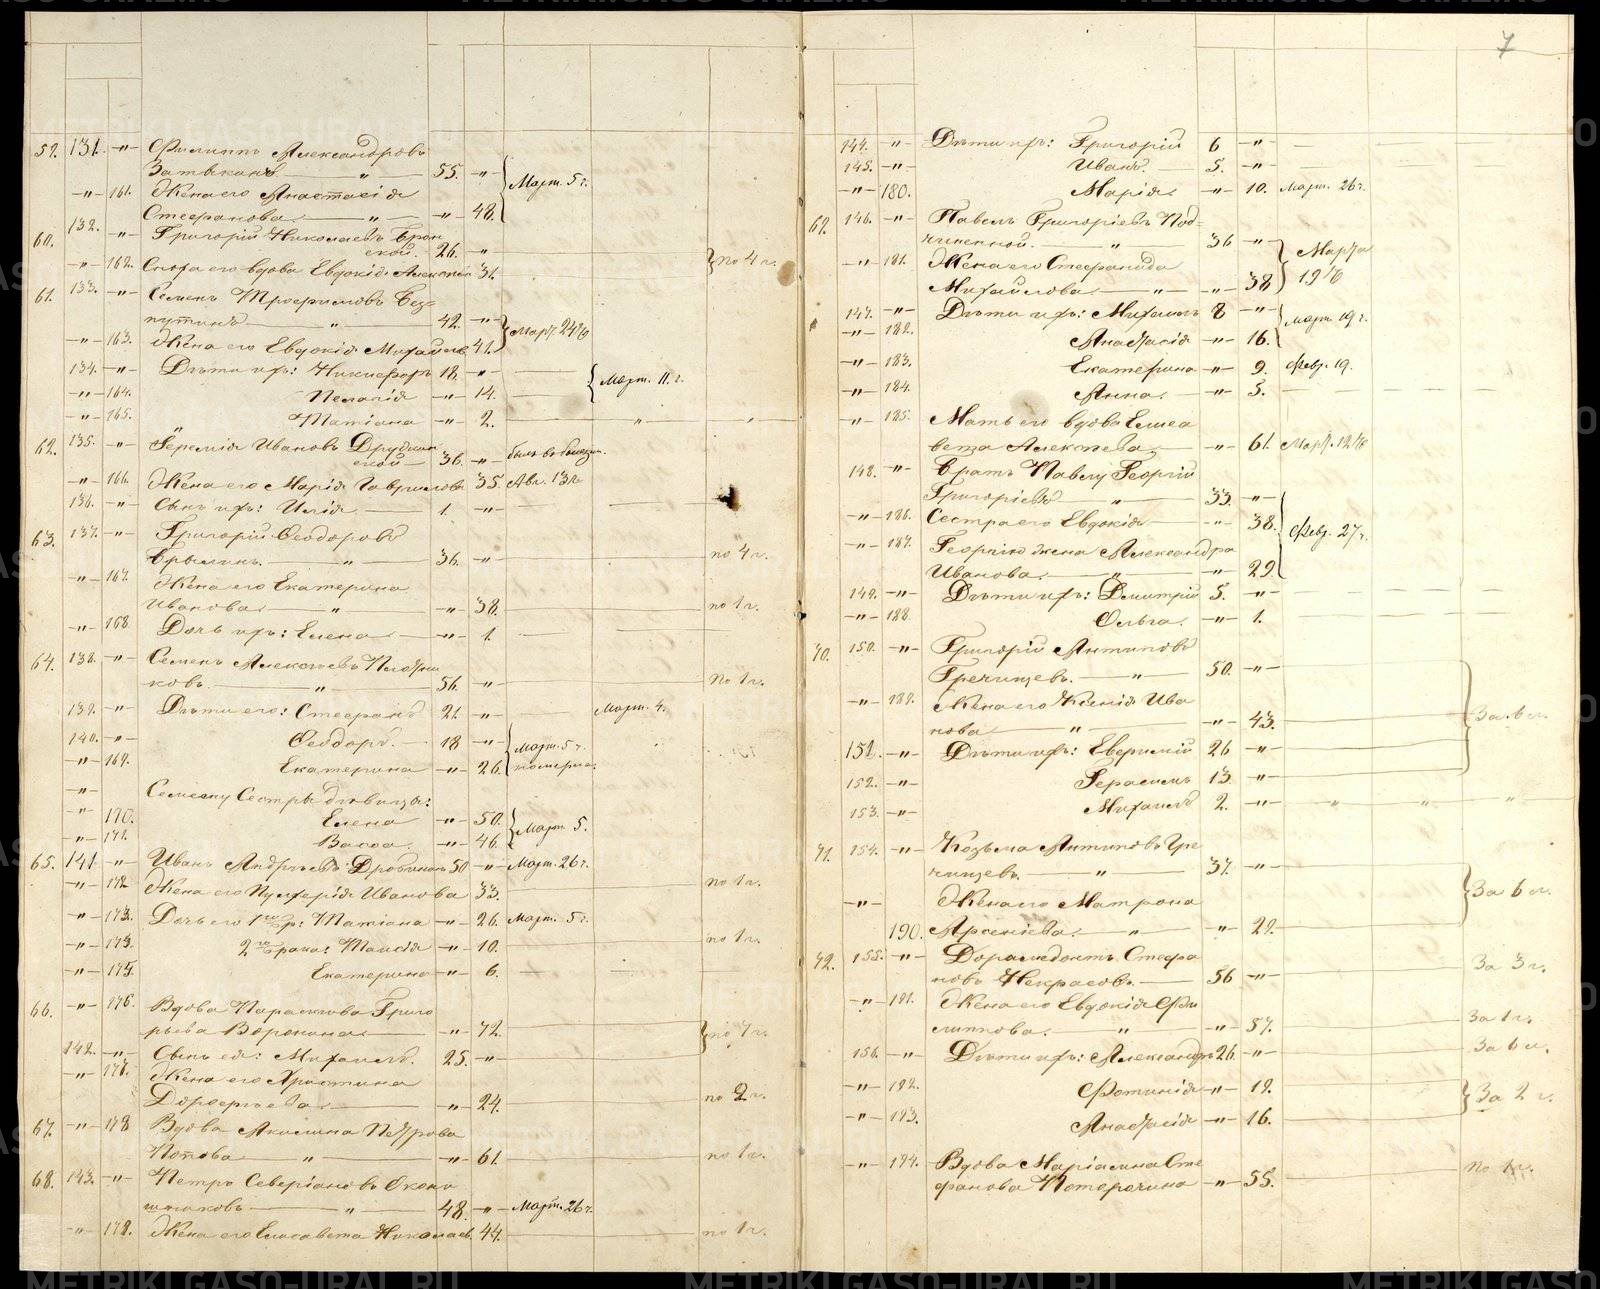 7
59. 131. -"- Филиппъ Александровъ
Затыкинъ " 55. -"-
-"- 161. Жена его Анастасія Март. 5 г.
Стефанова. " -"- 48.
60. 132. -"- Григорій Николаевъ
26. -"-
-"- 162. Сноха его вдова Евдокія 31. по 4 г.
61. 133. -"- Семенъ Трофимовъ Без=
путинъ " 42. -"-
-"- 163. Жена его Евдокія Михайл. 41. Март. 24го
134. -"- Дѣти ихъ: Никифоръ 18. -"-
-"- 164. Пелагія -"- 14. Март. 11. г.
-"- 165. Татіана -"- 2. " "
62. 135. -"- Іеремія Ивановъ
36. -"- былъ въ болѣзн.
-"- 166. Жена его Марія Гаврилова 35. Авг. 13 г.
136. -"- Сынъ ихъ: Илія 1. -"-
63. 137. -"- Григорій Ѳеодоровъ
Брылинъ. " 36. -"- по 4 г.
-"- 167. Жена его Екатерина
Иванова " -"- 38. по 1 г.
-"- 168. Дочь ихъ: Елена -"- 1.
64. 138. -"- Семенъ Алексѣевъ Плотни
ковъ. " 56. -"- по 1 г.
139. -"- Дѣти его: Стефанъ 21. -"- Март. 4.
140. -"- Ѳеодоръ. 18 -"- Март. 5 г.
-"- 169. Екатерина -"- 26. померла.
-"- Семену Сестры дѣвицы:
-"- 170. Елена -"- 50. Март. 5.
-"- 171. Васса. -"- 46.
65. 141 -"- Иванъ Андреевъ Дробининъ 50 -"- Март. 26 г.
-"- 172. Жена его Пулхерія Иванова 33. по 1 г.
-"- 173. Дочь его 1го бр: Татіана -"- 26. Март. 5 г.
-"- 173. 2го брака: Таисія -"- 10. по 1 г.
-"- 175. Екатерина -"- 6.
66. -"- 176. Вдова Параскева Григо
рьева Воронина -"- 72. по 7 г.
142. -"- Сынъ ея: Михаилъ. 25. -"-
-"- 177. Жена его Христина
Дорофѣева -"- 24. по 2 г.
67. -"- 178 Вдова Акилина Петрова
Попова " -"- 61. по 1 г.
68. 143. -"- Петръ Северіановъ
" 48. -"- Март. 26 г.
-"- 179. Жена его Елисавета Николаев. 44. по 1 г.
144. -"- Дѣти ихъ: Григорій 6 -"-
145. -"- Иванъ. 5. -"-
-"- 180. Марія. -"- 10. Март. 26 г.
69. 146. -"- Павелъ Григоріевъ Под-
чиненной. " 36 -"-
-"- 181. Жена его Стефанида Марта
Михайлова " -"- 38 19го
147. -"- Дѣти ихъ: Михаилъ 8 -"-
-"- 182. Анастасія -"- 16. Март. 19 г.
-"- 183. Екатерина -"- 9. Февр. 19.
-"- 184. Анна. -"- 3.
-"- 185. Мать его вдова Елиса
вета Алексѣева -"- 61. Март. 12го
148. -"- Братъ Павлу Георгій
Григоріевъ " 33. -"-
-"- 186. Сестра его Евдокія -"- 38. Февр. 27 г.
-"- 187. Георгію жена Александра
Иванова. " -"- 29
149. -"- Дѣти ихъ: Дмитрій 5. -"-
-"- 188 Ольга. -"- 1.
70. 150. -"- Григорій Антиповъ
Гречищевъ. " 50. -"-
-"- 189. Жена его Ксенія Ива
нова " -"- 43. За 6 л.
151. -"- Дѣти ихъ: Евфимій 26 -"-
152. -"- Герасимъ 13. -"-
153. -"- Михаилъ 2. -"- " " "
71. 154. -"- Козьма Антиповъ Гре
чищевъ. " 37. -"-
-"- Жена его Матрона За 6 л.
190. Арсеніева. " -"- 29.
72. 155. -"- Доримедонтъ Стефа За 3 г.
новъ Некрасовъ. 56 -"-
-"- 191. Жена его Евдокія Фи
липпова. " -"- 57. За 1 г.
156. -"- Дѣти ихъ: Александръ 26. -"- За 6 л.
-"- 192. Фотинія -"- 19. За 2 г.
-"- 193. Анастасія -"- 16.
-"- 194. Вдова Маріамна Сте
фанова Потеряхина -"- 55. по 1 г.
METRIKI.GASO-URAL.RU